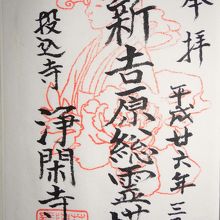 奉拝
平成廿六年三
新吉原総霊
投込寺
浄閑寺